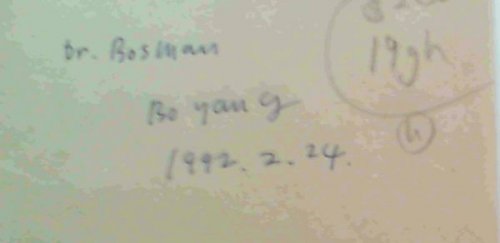 Dr. Bosman
Bo yang
1992.2.24.
19gh
h